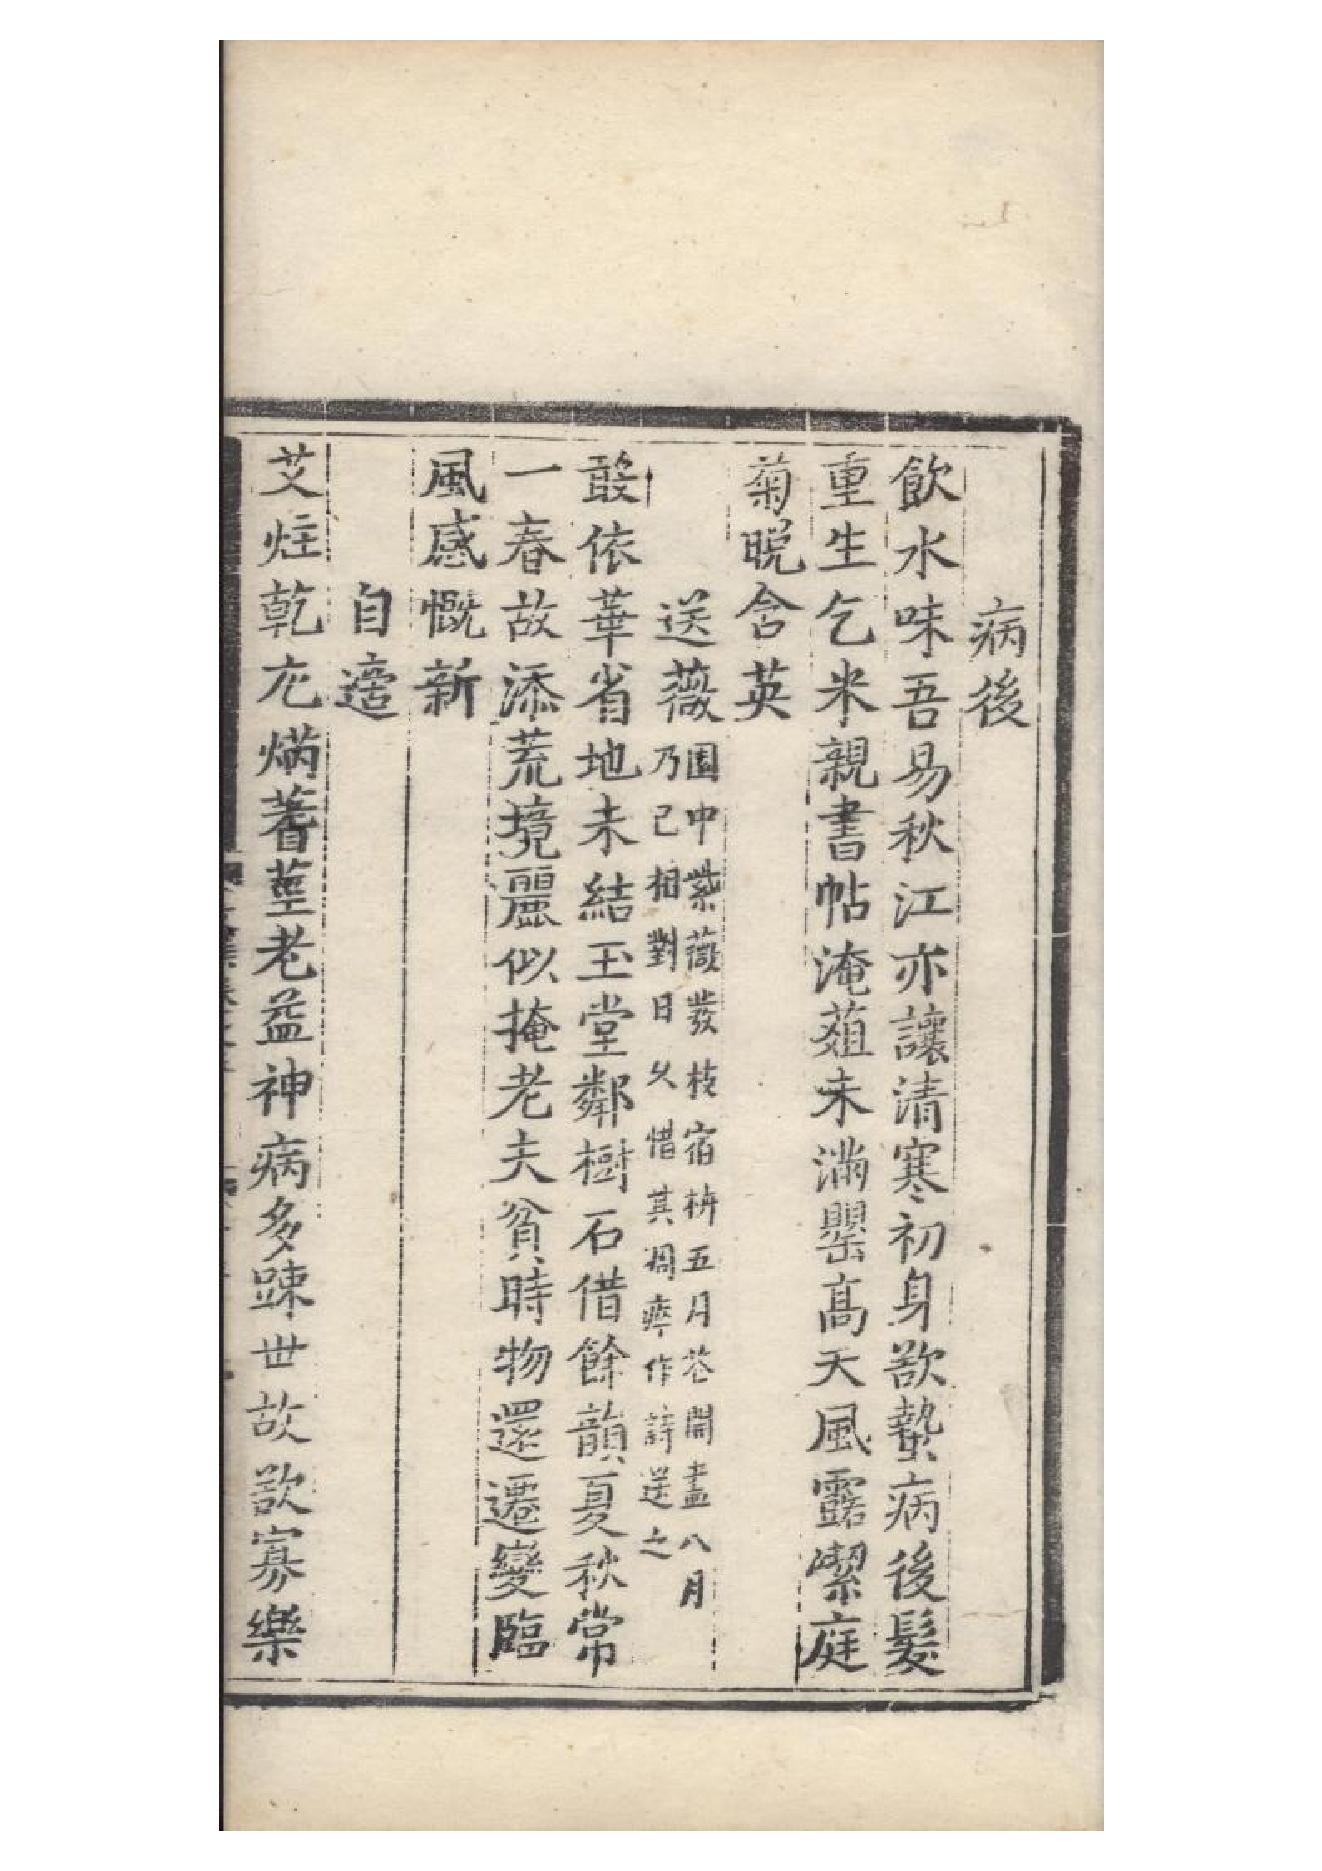 病後
飲水味吾易秋江亦讓清寒初身欲蟄病後髮
重生乞米親書帖淹葅未滿罌高天風露潔庭
菊晩含英
送薇園中紫薇發枝宿枿五月花開盡八月
乃已相對日久惜其凋瘁作詩送之
敢依華省地未結玉堂鄰樹石借餘韻夏秋常
一春故添荒境麗似掩老夫貧時物還遷變臨
風感慨新
自遣
艾炷乾㐳焫蓍莖老益神病多踈世故欲寡樂